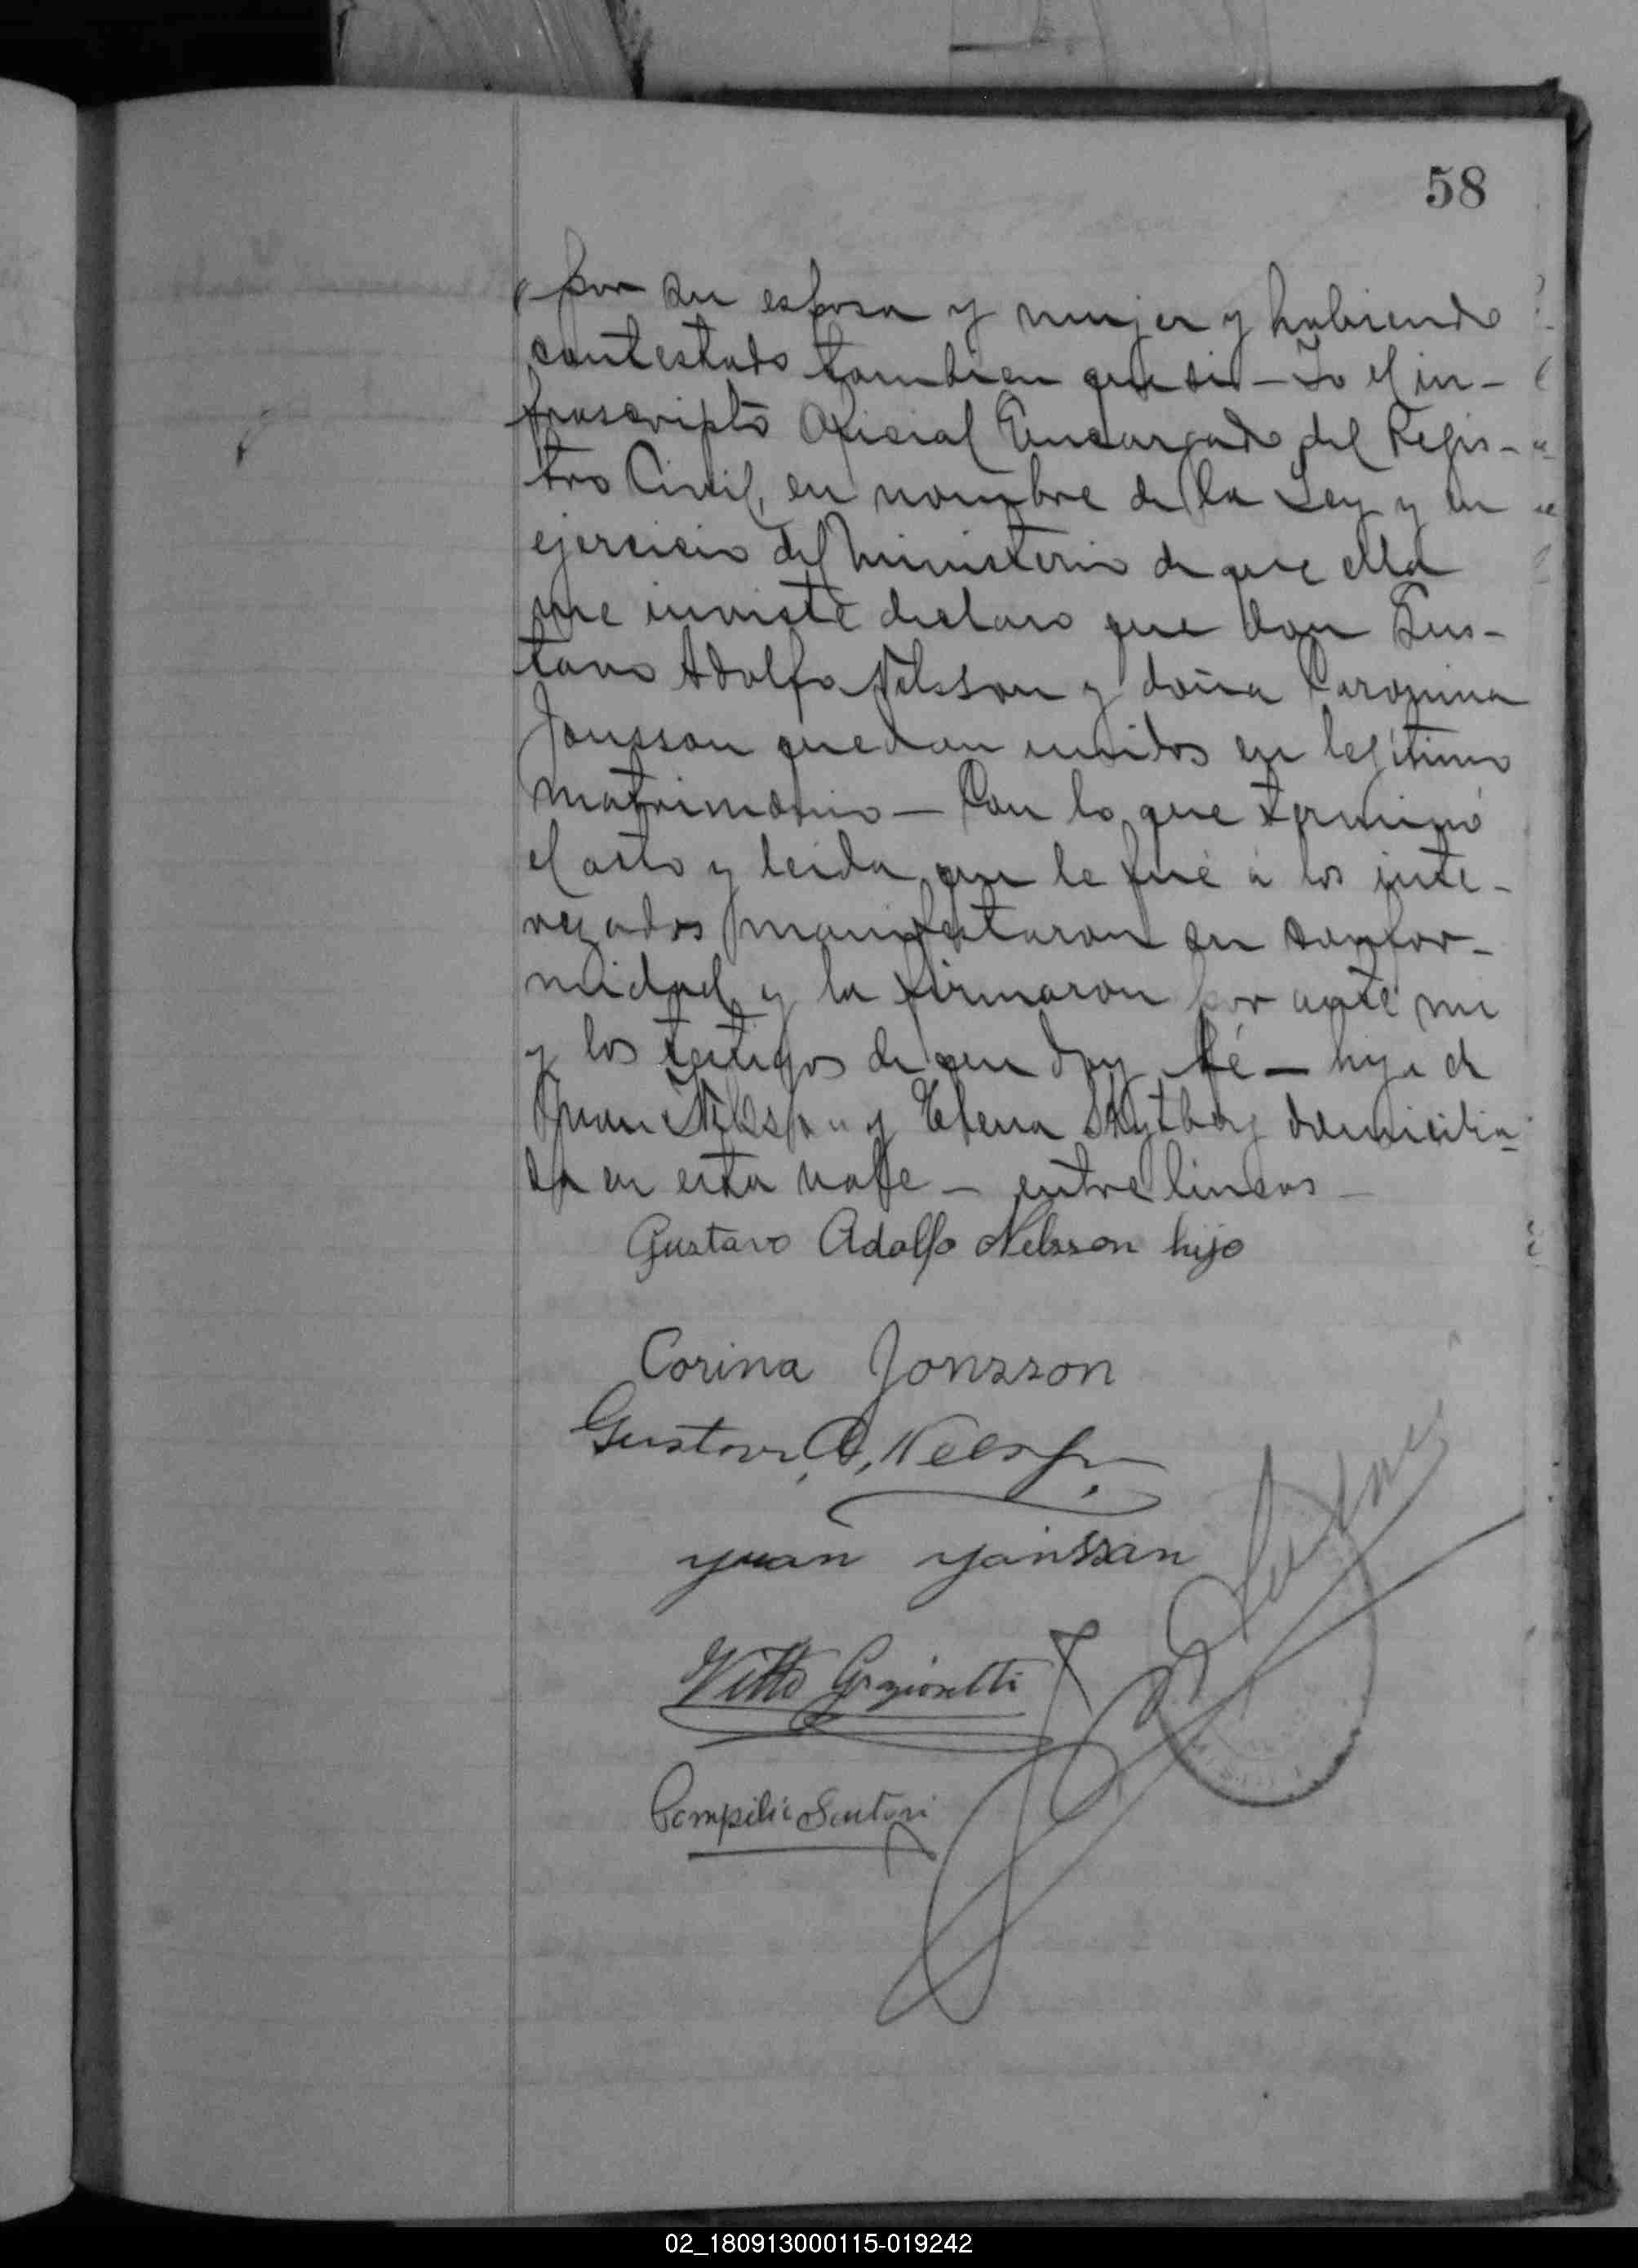 58
por su esposa y mujer y habiendo
contestado tambien que si – Yo el in-
frascripto Oficial Encargado del Regis-
tro Civil, en nombre de la Ley y en
ejercicio del Ministerio de que ella
me inviste declaro que don Gus-
tavo Adolfo Nelsson y doña Carorina
Jonsson quedan unidos en legítimo
matrimonio – Con lo que terminó
el acto y leida que le fué á los inte-
rezados manifestaron su confor-
midad y la firmaron por ante mi
y los testigos de que doy fé – hija de
Juan Nilsson y Elena domicilia-
da en esta – vale – entre lineas –
Gustavo Adolfo Nelsson hijo
Corina Jonsson
Gustavo A. Nelson
Yuan Yanssan
Vitto Grazioretti
Pompilio Sartori
02_180913000115-019242